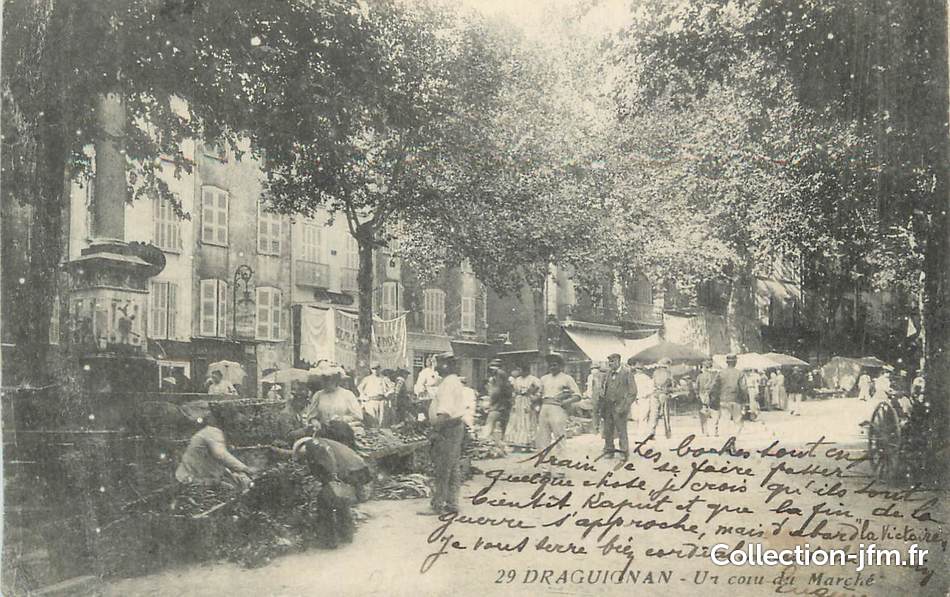 Les boches sont en
train de se faire passer
quelque chose, je crois qu'ils sont
bientôt Kaput et que la fin de la
guerre s'approche, mais d'abord "la Victoire,
Je vous serre bien
Collection-jfm.fr
29 DRAGUIGNAN - Un coin du Marché